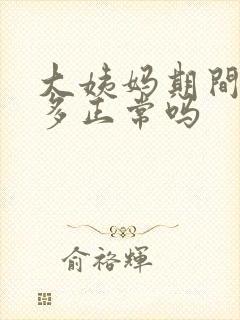 大姨妈期間
多正常吗
俞裕輝